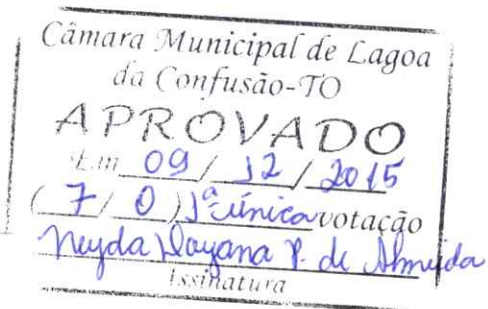 Câmara Municipal de Lagoa
da Confusão-TO
APROVADO
Em 09 / 12 / 2015
( 7 / 0 ) 1ª única votação
Neyda Dayana P. de Almeida
Assinatura